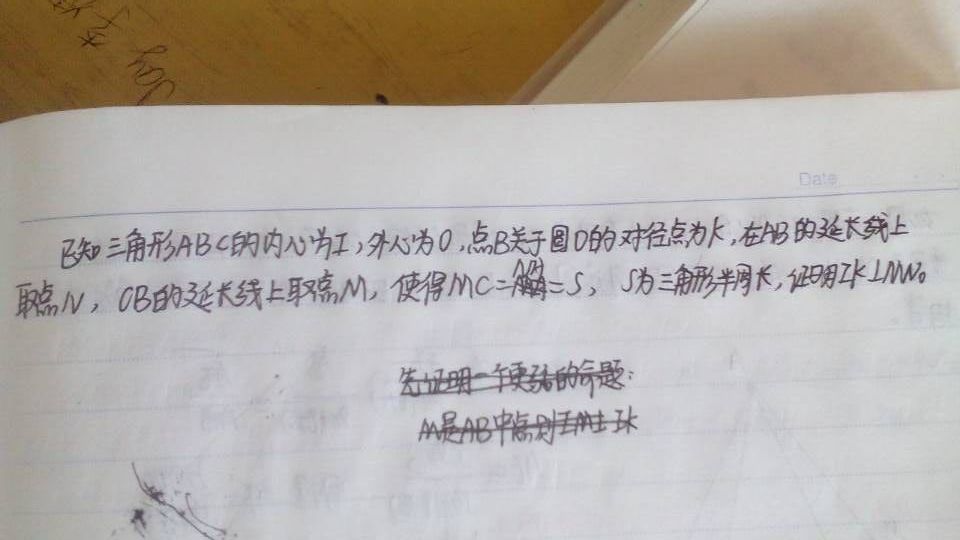 Date
已知三角形ABC的内心为I,外心为O,点B关于圆O的对径点为K,在AB的延长线上
取点N,CB的延长线上取点M,使得MC=
=S,S为三角形半周长,证明IK⊥MN。
先证明一个更强的命题:
M是AB中点则IM⊥IK